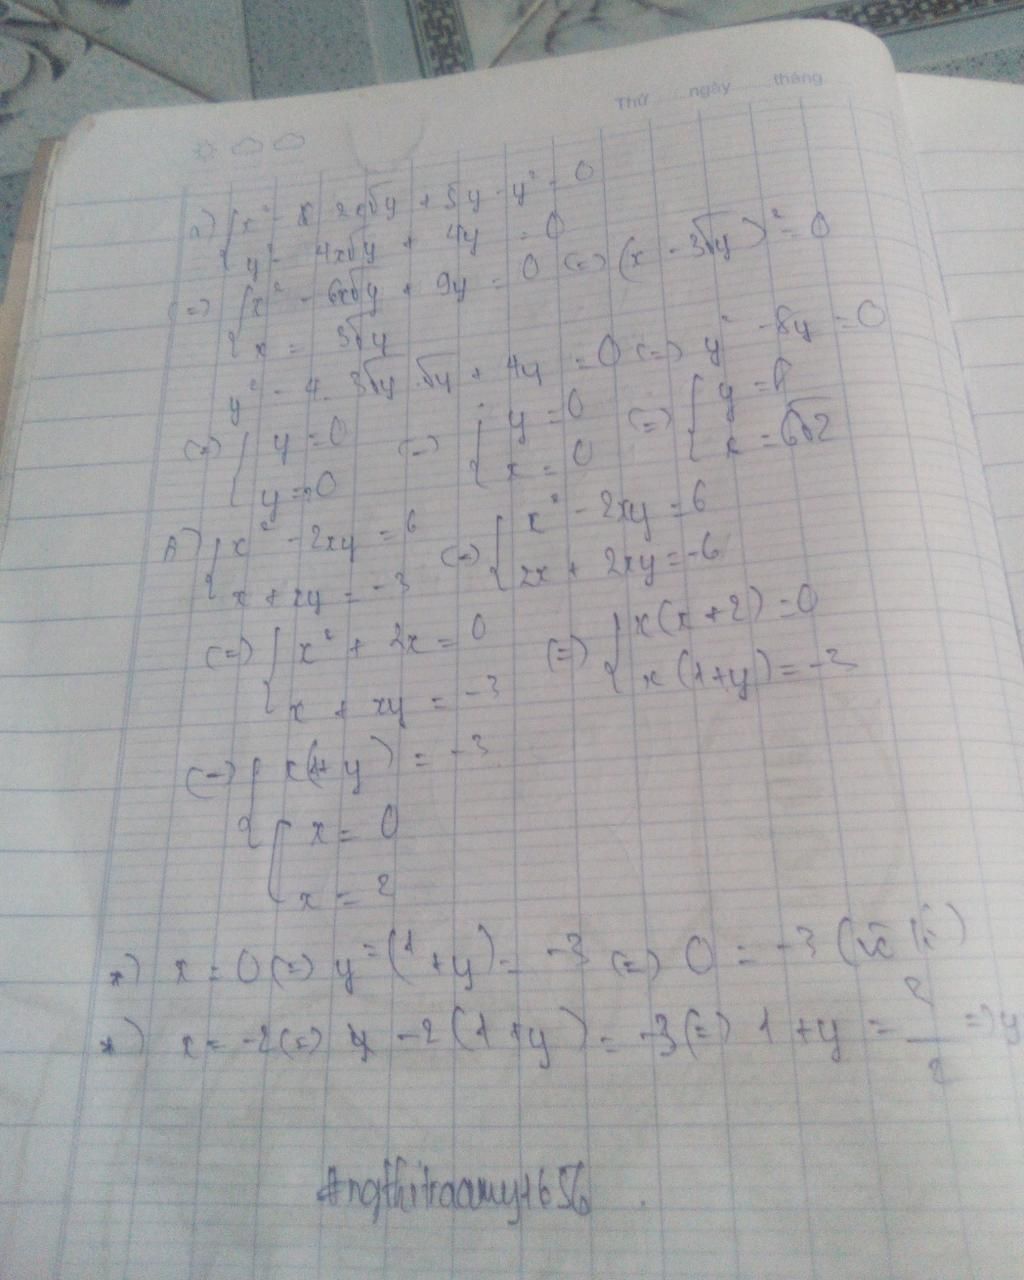 Thứ ngày tháng
a) { x² - 2x√y + 5y - y² = 0
{ y² - 4x√y + 4y = 0
(=) { x² - 6x√y + 9y = 0 (=) (x - 3√y)² = 0
{ x = 3√y
y² - 4. 3√y.√y + 4y = 0 (=) y² - 8y = 0
(=) { y = 0 (=) { y = 0 (=) { y = 8
{ y = 0 { x = 0 { x = 6√2
{ x² - 2xy = 6 (=) { x² - 2xy = 6
{ x + xy = -3 { 2x + 2xy = -6
(=) { x² + 2x = 0 (=) { x(x+2) = 0
{ x + xy = -3 { x(1+y) = -3
(=) { x(1+y) = -3
{ [ x = 0
[ x = 2
*) x = 0 (=) y = (1+y) = -3 (=) 0 = -3
*) x = -2 (=) -2(1+y) = -3 (=) 1 + y = =) y
#ngthitraamy1656